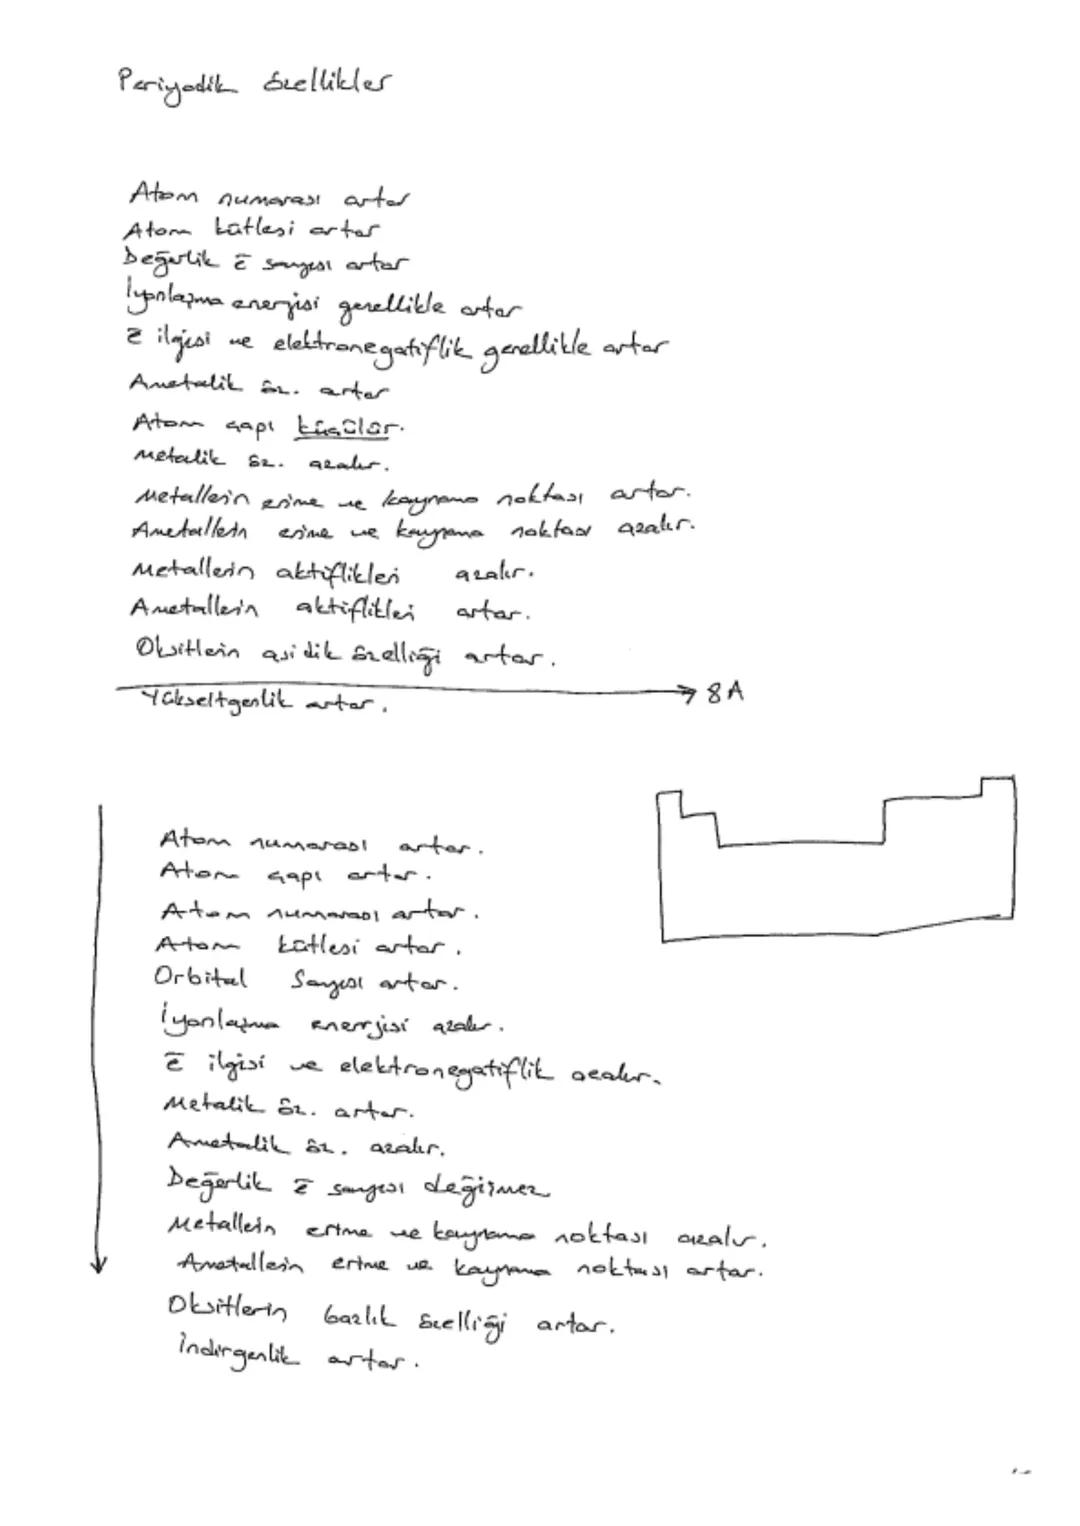 Periyodik özellikler
Atom numarası artar
Atom kütlesi artar
Değerlik ē sayısı artar
İyonlaşma enerjisi genellikle artar
ē ilgisi ve elektronegatiflik genellikle artar
Ametalik öz. artar
Atom çapı küçülür.
Metalik öz. azalır.
Metallerin erime ve kaynama noktası artar.
Ametallerin erime ve kaynama noktası azalır.
Metallerin aktiflikleri azalır.
Ametallerin aktiflikleri artar.
Oksitlerin asidik özelliği artar.
→ 8A
Yükseltgenlik artar.
Atom numarası artar.
Atom çapı artar.
Atom numarası artar.
Atom kütlesi artar.
Orbital Sayısı artar.
İyonlaşma enerjisi azalır.
ē ilgisi ve elektronegatiflik azalır.
Metalik öz. artar.
Ametalik öz. azalır.
Değerlik ē sayısı değişmez
Metallerin erime ve kaynama noktası azalır.
Ametallerin erime ve kaynama noktası artar.
Oksitlerin bazlık özelliği artar.
İndirgenlik artar.